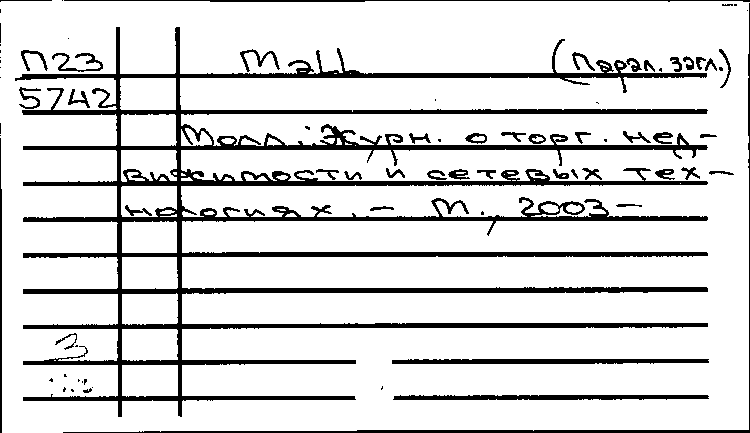 П23 Mall (Парал. загл.)
5742
Молл: Журн. о торг. нед-
вижимости и сетевых тех-
нологиях. – М., 2003–
3